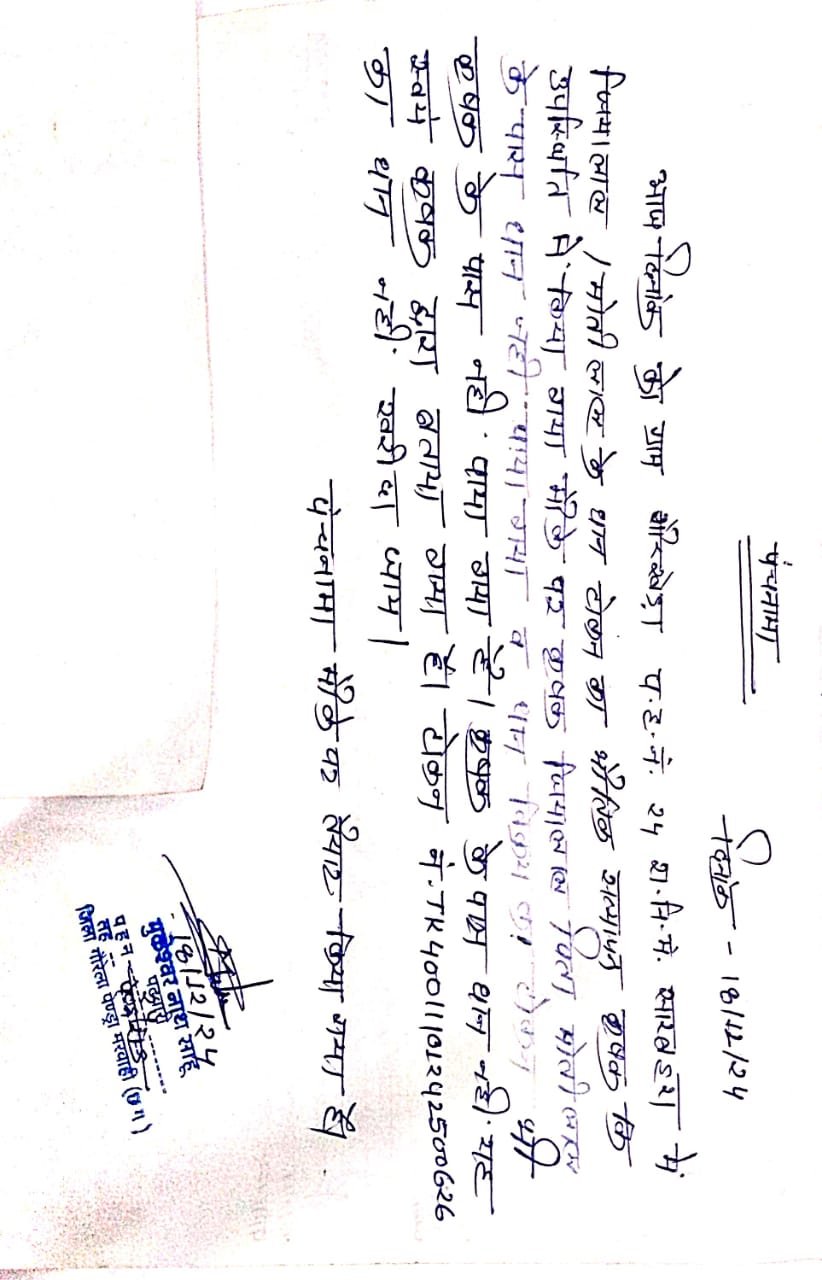 पंचनामा
दिनांक - 18/12/24
आज दिनांक को ग्राम प.ह.नं. 24 रा.नि.मं. में
जियालाल / मोतीलाल के धान टोकन का भौतिक सत्यापन कृषक कि
उपस्थिति में किया गया मौके पर कृषक जियालाल पिता मोतीलाल
के पास धान नही पाया गया व धान विक्रय का टोकन भी
कृषक के पास नही पाया गया है। कृषक के पास धान नही यह
स्वयं कृषक द्वारा बताया गया है। टोकन नं. TK40011101242500626
का धान नही खरीदा जाय।
पंचनामा मौके पर तैयार किया गया है।
18/12/24
मुनेश्वर नाथ साहू
पटवारी
प.ह.नं.
तह.
जिला गौरेला पेण्ड्रा मरवाही (छ.ग.)